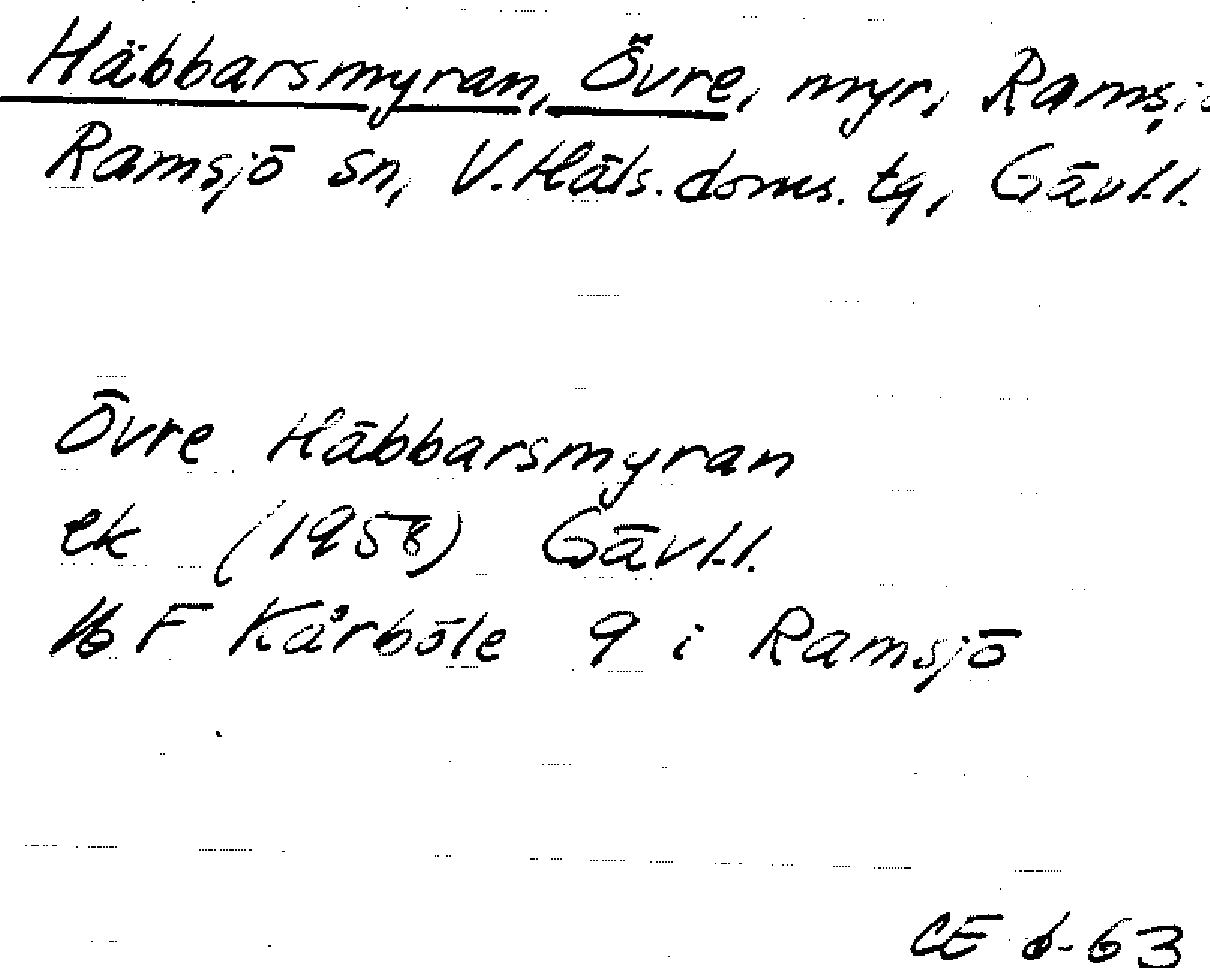 Häbbarsmyran, Övre, myr, Ramsjö
Ramsjö sn, V.Häls.doms.tg, Gävl.l.
Övre Häbbarsmyran
ek (1958) Gävl.l.
16 F Kårböle 9 i Ramsjö
CE 6-63